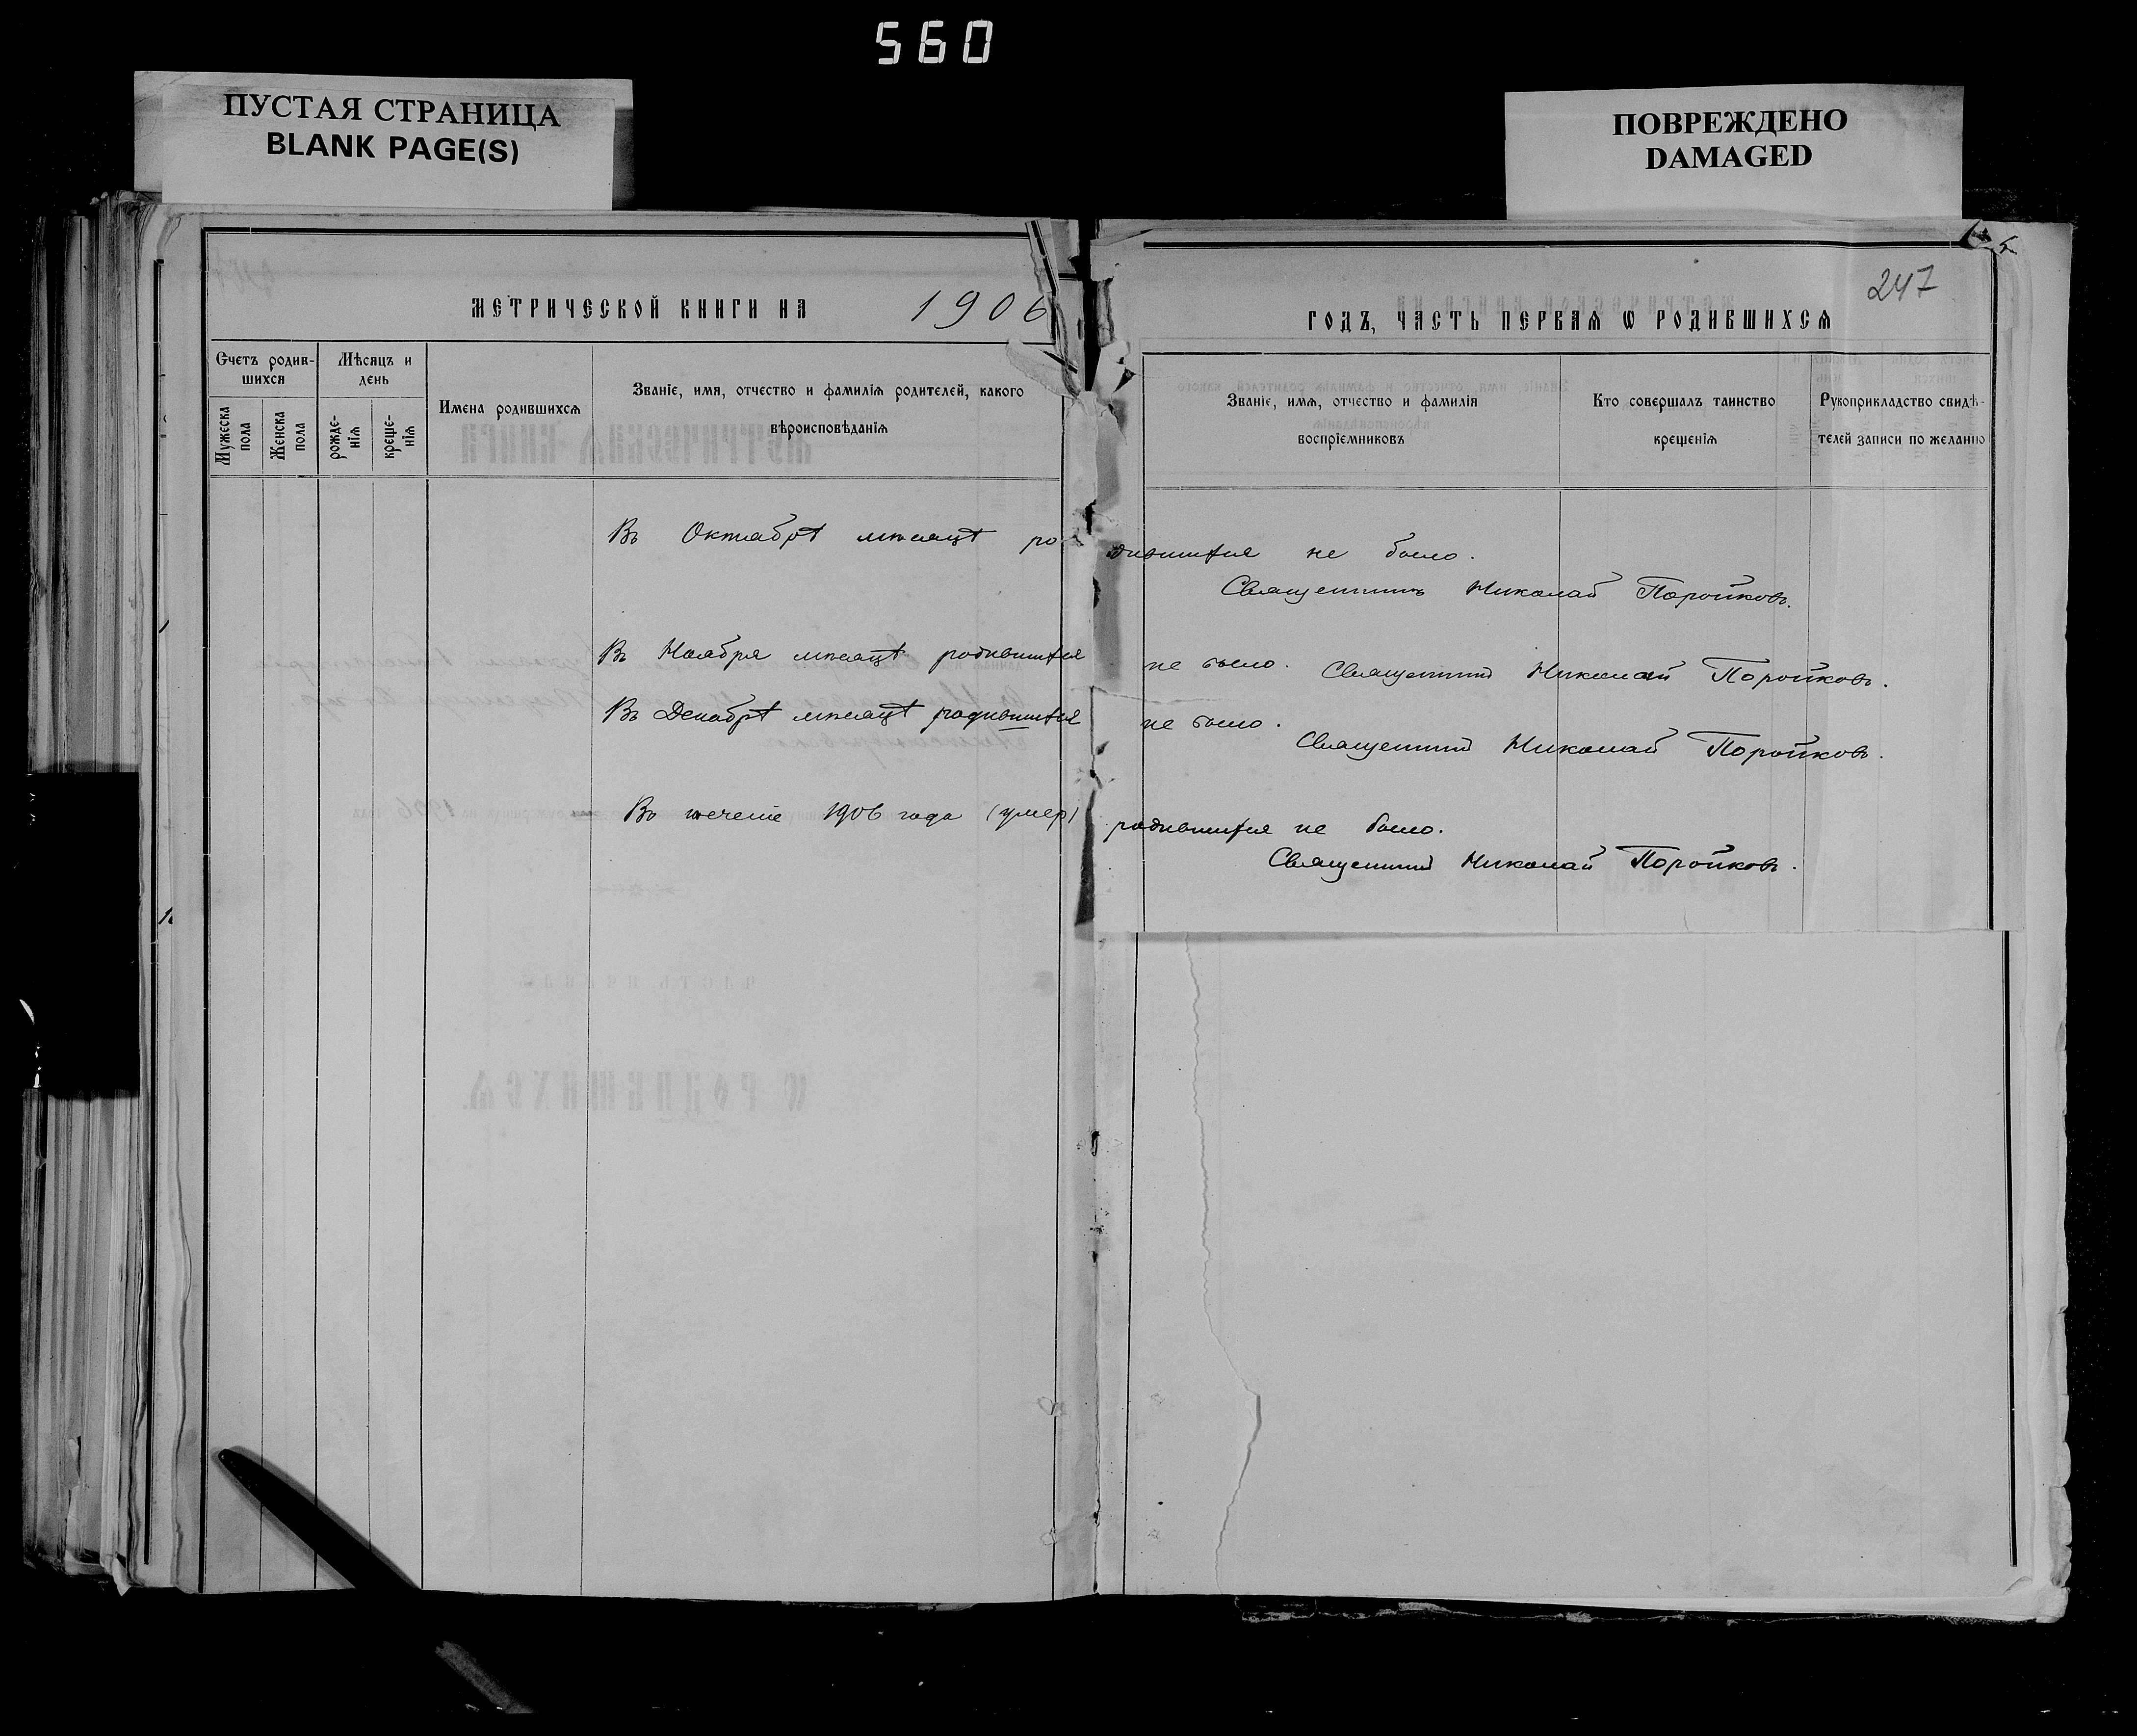 560
ПУСТАЯ СТРАНИЦА
BLANK PAGE(S)
ПОВРЕЖДЕНО
DAMAGED
247
МЕТРИЧЕСКОЙ КНИГИ НА 1906
ГОДЪ, ЧАСТЬ ПЕРВАЯ Ѡ РОДИВШИХСЯ
Счетъ родившихся
Мѣсяцъ и день
Мужеска пола
Женска пола
рожденія
крещенія
Имена родившихся
Званіе, имя, отчество и фамилія родителей, какого
вѣроисповѣданія
Званіе, имя, отчество и фамилія
воспріемниковъ
Кто совершалъ таинство
крещенія
Рукоприкладство свидѣ-
телей записи по желанію
Въ Октабрѣ мѣсяцѣ родившихся не было.
Священникъ Николай Поройковъ.
Въ Ноября мѣсяцѣ родившихся не было. Священник Николай Поройковъ.
Въ Декабрѣ мѣсяцѣ родившихся не было.
Священник Николай Поройковъ.
Во течение 1906 года (умер) родившихся не было.
Священник Николай Поройковъ.